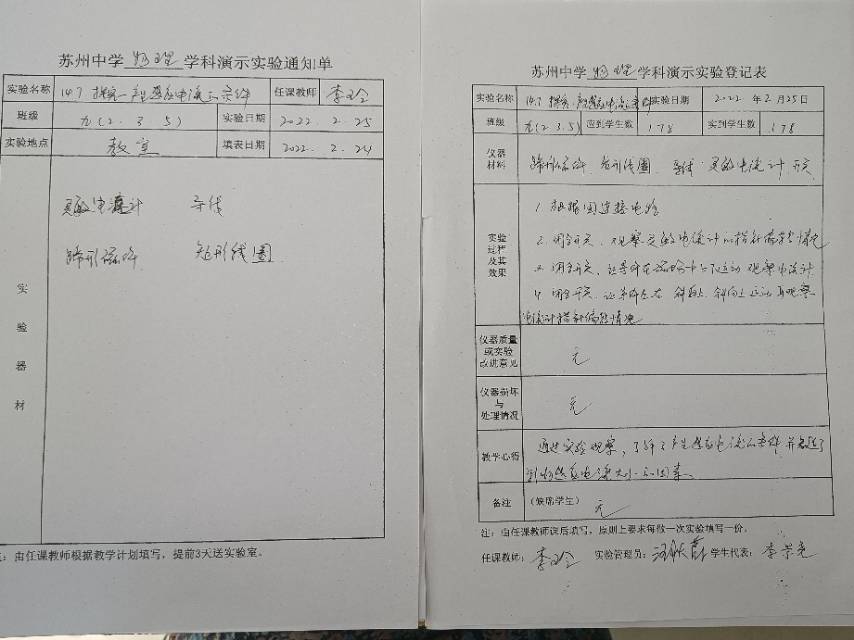 苏州中学 物理 学科演示实验通知单
实验名称 14.7 探究产生感应电流的条件 任课教师 李玲
班级 九(2.3.5) 实验日期 2022.2.25
实验地点 教室 填表日期 2022.2.24
实验器材
灵敏电流计 导线
蹄形磁体 矩形线圈
注：由任课教师根据教学计划填写，提前3天送实验室。
苏州中学 物理 学科演示实验登记表
实验名称 14.7 探究产生感应电流的条件 实验日期 2022年2月25日
班级 九(2.3.5) 应到学生数 178 实到学生数 178
仪器材料 蹄形磁体 矩形线圈 导线 灵敏电流计 开关
实验过程及其效果
1. 根据图连接电路
2. 闭合开关、观察灵敏电流计的指针偏转情况
3. 闭合开关、让导体在磁场中上下运动 观察电流计
4. 闭合开关、让导体左右、斜向上、斜向下运动再观察
电流计指针偏转情况
仪器质量或实验改进意见 无
仪器损坏与处理情况 无
教学心得 通过实验观察，了解了产生感应电流的条件并知道了
影响感应电流大小的因素。
备注 (缺席学生) 无
注：由任课教师课后填写，原则上要求每做一次实验填写一份。
任课教师：李玲 实验管理员： 学生代表：